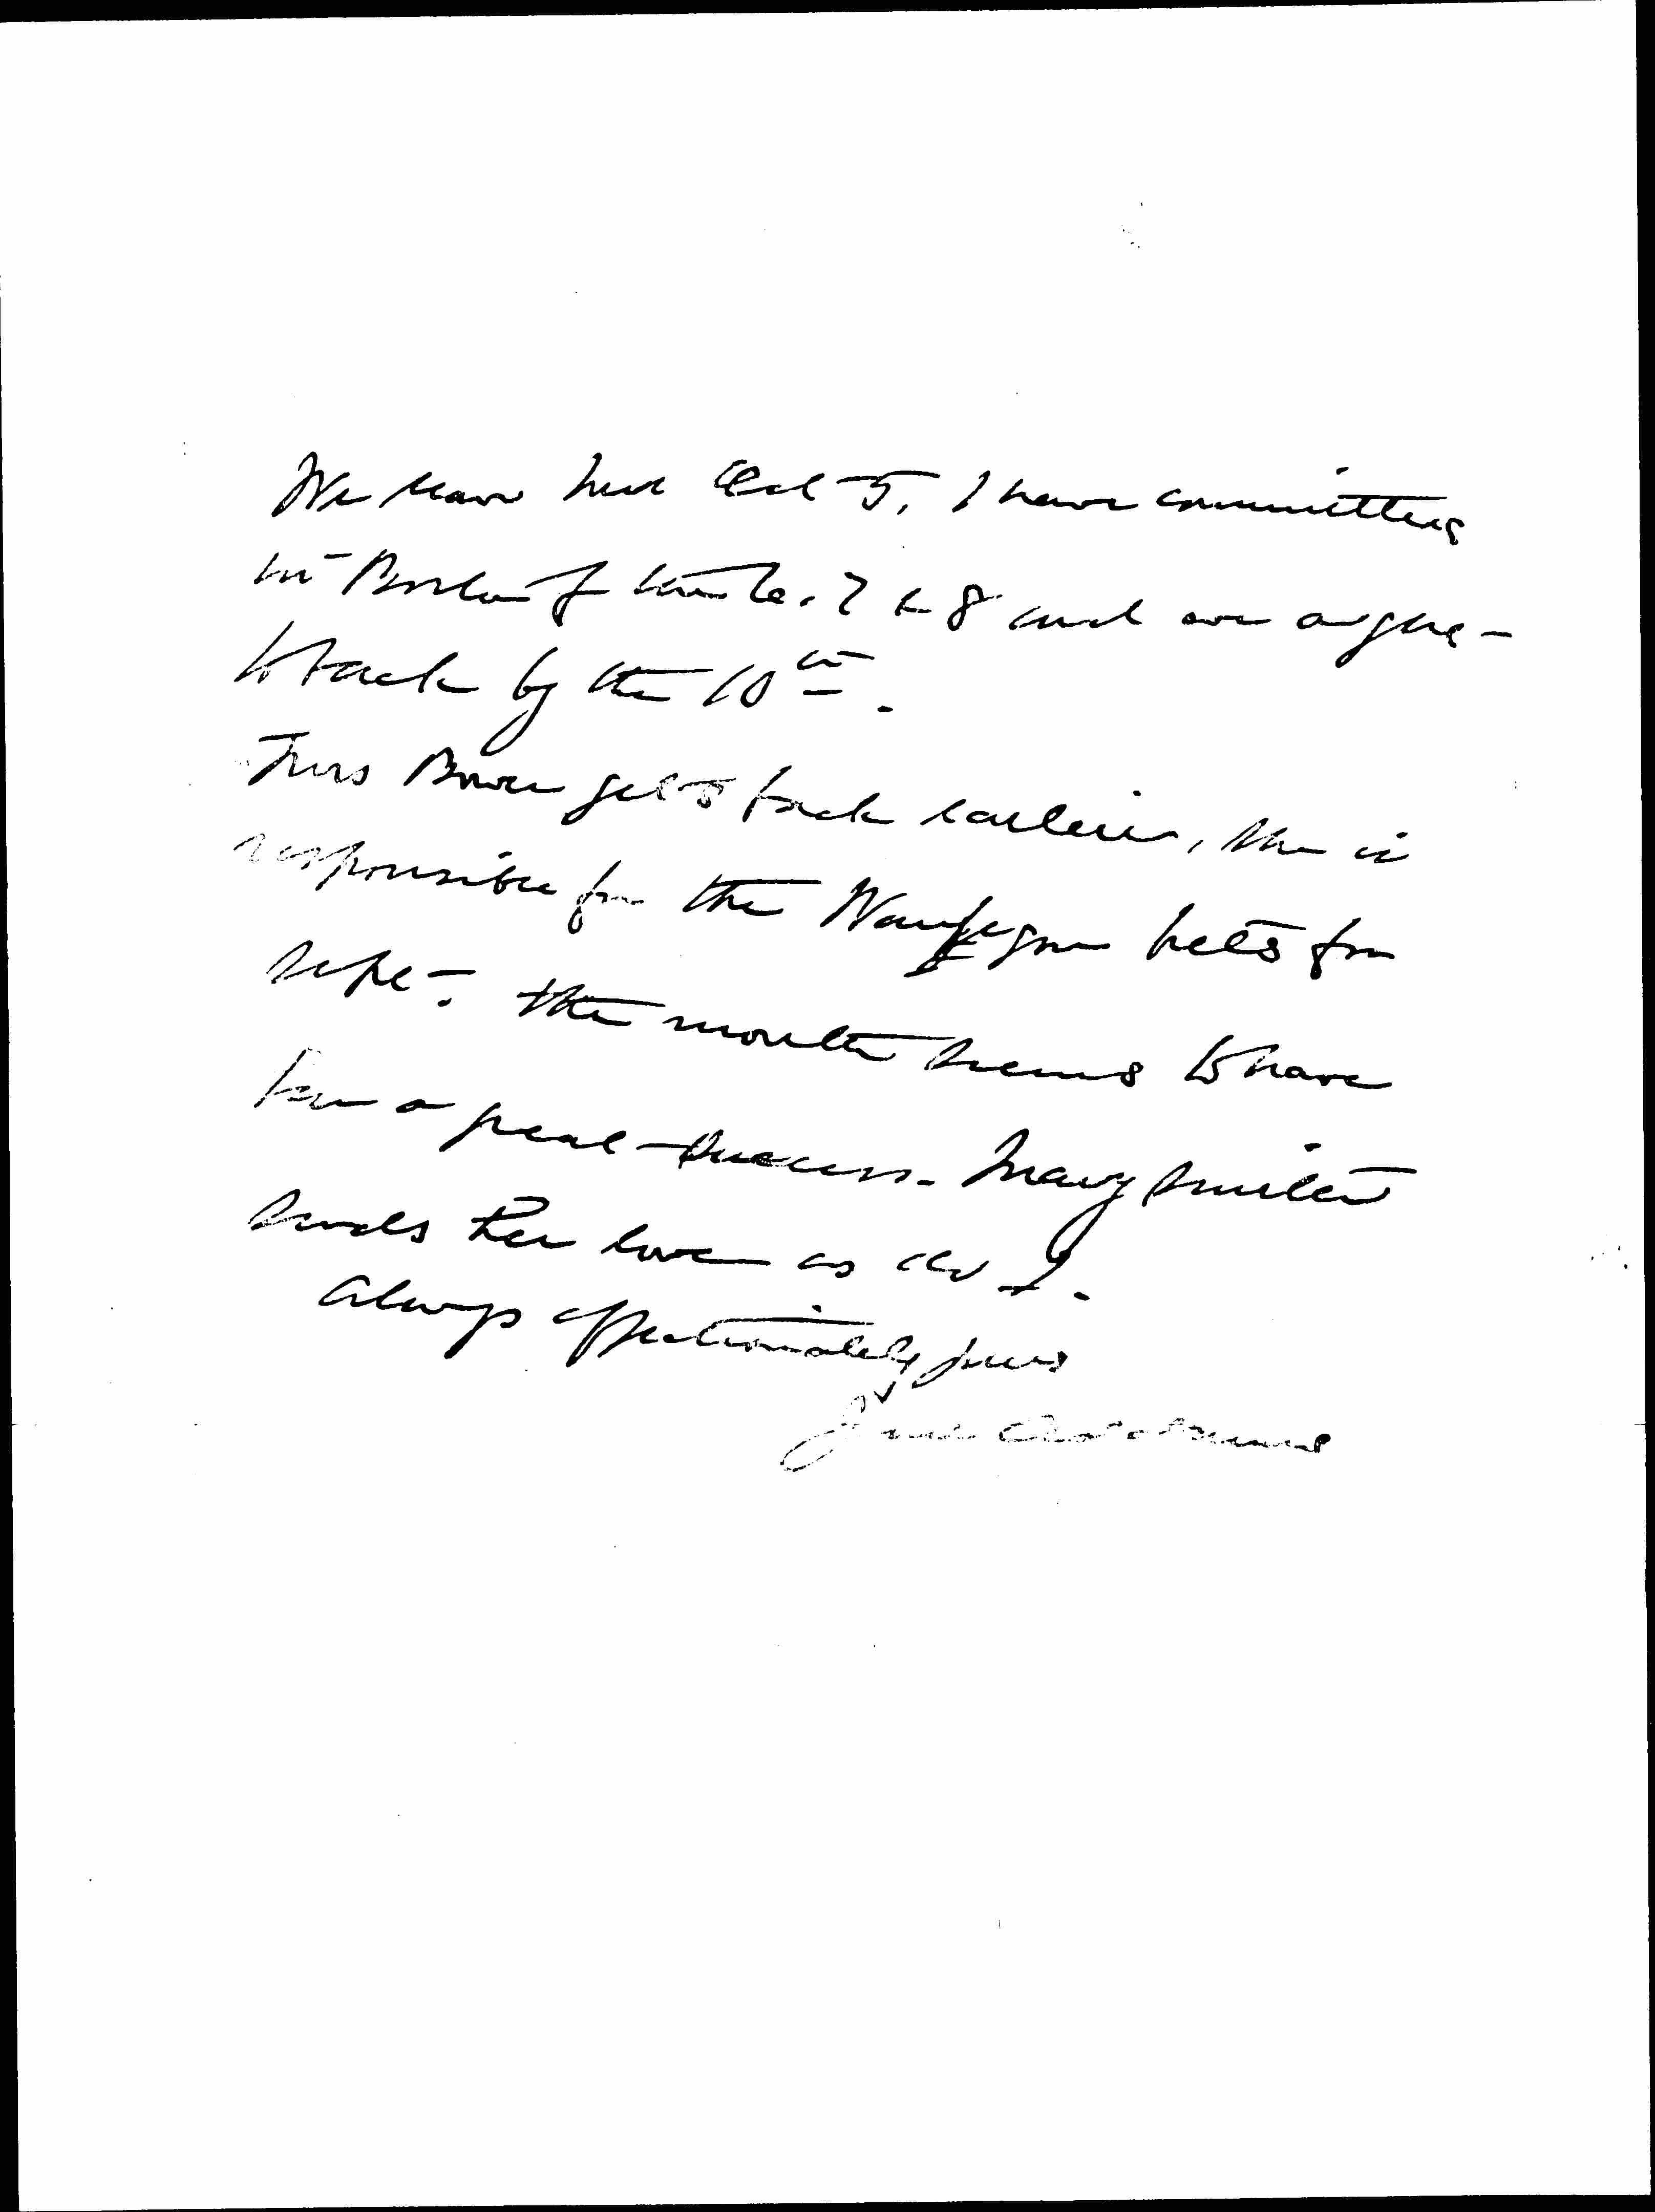 We leave here Oct 5, I have committees
in Boston & 7 & 8 and
to back by the 10th.
Mrs Bowen gets back earlier, she is
responsible for the Waukegan bills for
Sept. The month seems to have
been a great success. Mary Smith
sends her love as do I.
Always affectionately yours
Jane Addams